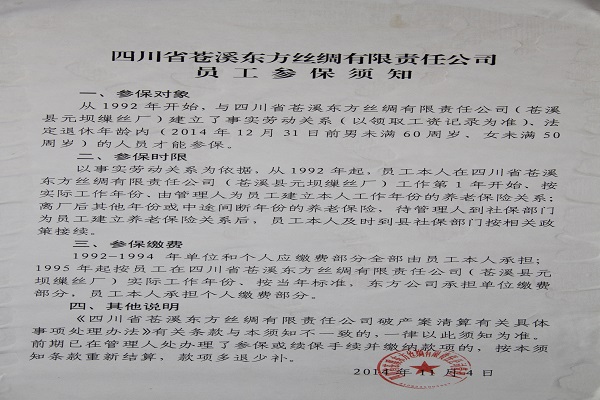 四川省苍溪东方丝绸有限责任公司
员工参保须知
一、参保对象
从1992年开始，与四川省苍溪东方丝绸有限责任公司（苍溪
县元坝缫丝厂）建立了事实劳动关系（以领取工资记录为准）、法
定退休年龄内（2014年12月31日前男未满60周岁、女未满50
周岁）的人员才能参保。
二、参保时限
以事实劳动关系为依据，从1992年起，员工本人在四川省苍溪
东方丝绸有限责任公司（苍溪县元坝缫丝厂）工作第1年开始，按
实际工作年份，由管理人为员工建立本人工作年份的养老保险关系；
离厂后其他年份或中途间断年份的养老保险，待管理人到社保部门
为员工建立养老保险关系后，员工本人及时到县社保部门按相关政
策接续。
三、参保缴费
1992-1994年单位和个人应缴费部分全部由员工本人承担；
1995年起按员工在四川省苍溪东方丝绸有限责任公司（苍溪县元
坝缫丝厂）实际工作年份、按当年标准，东方公司承担单位缴费
部分，员工本人承担个人缴费部分。
四、其他说明
《四川省苍溪东方丝绸有限责任公司破产案清算有关具体
事项处理办法》有关条款与本须知不一致的、一律以此须知为准。
前期已在管理人处办理了参保或续保手续并缴纳款项的，按本须
知条款重新结算，款项多退少补。
2014年11月4日